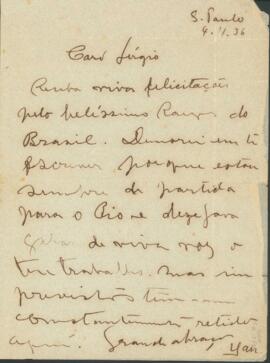 S. Paulo
4.11.36
Caro Sérgio
Receba vivas felicitações
pelo belíssimo Raizes do
Brasil. Demorei em te
escrever porque estou
sempre de partida
para o Rio e desejava
de viva voz o
teu trabalho. Mas im
previstos têm-me
constantemente retido
aqui. Grande abraço
Yan